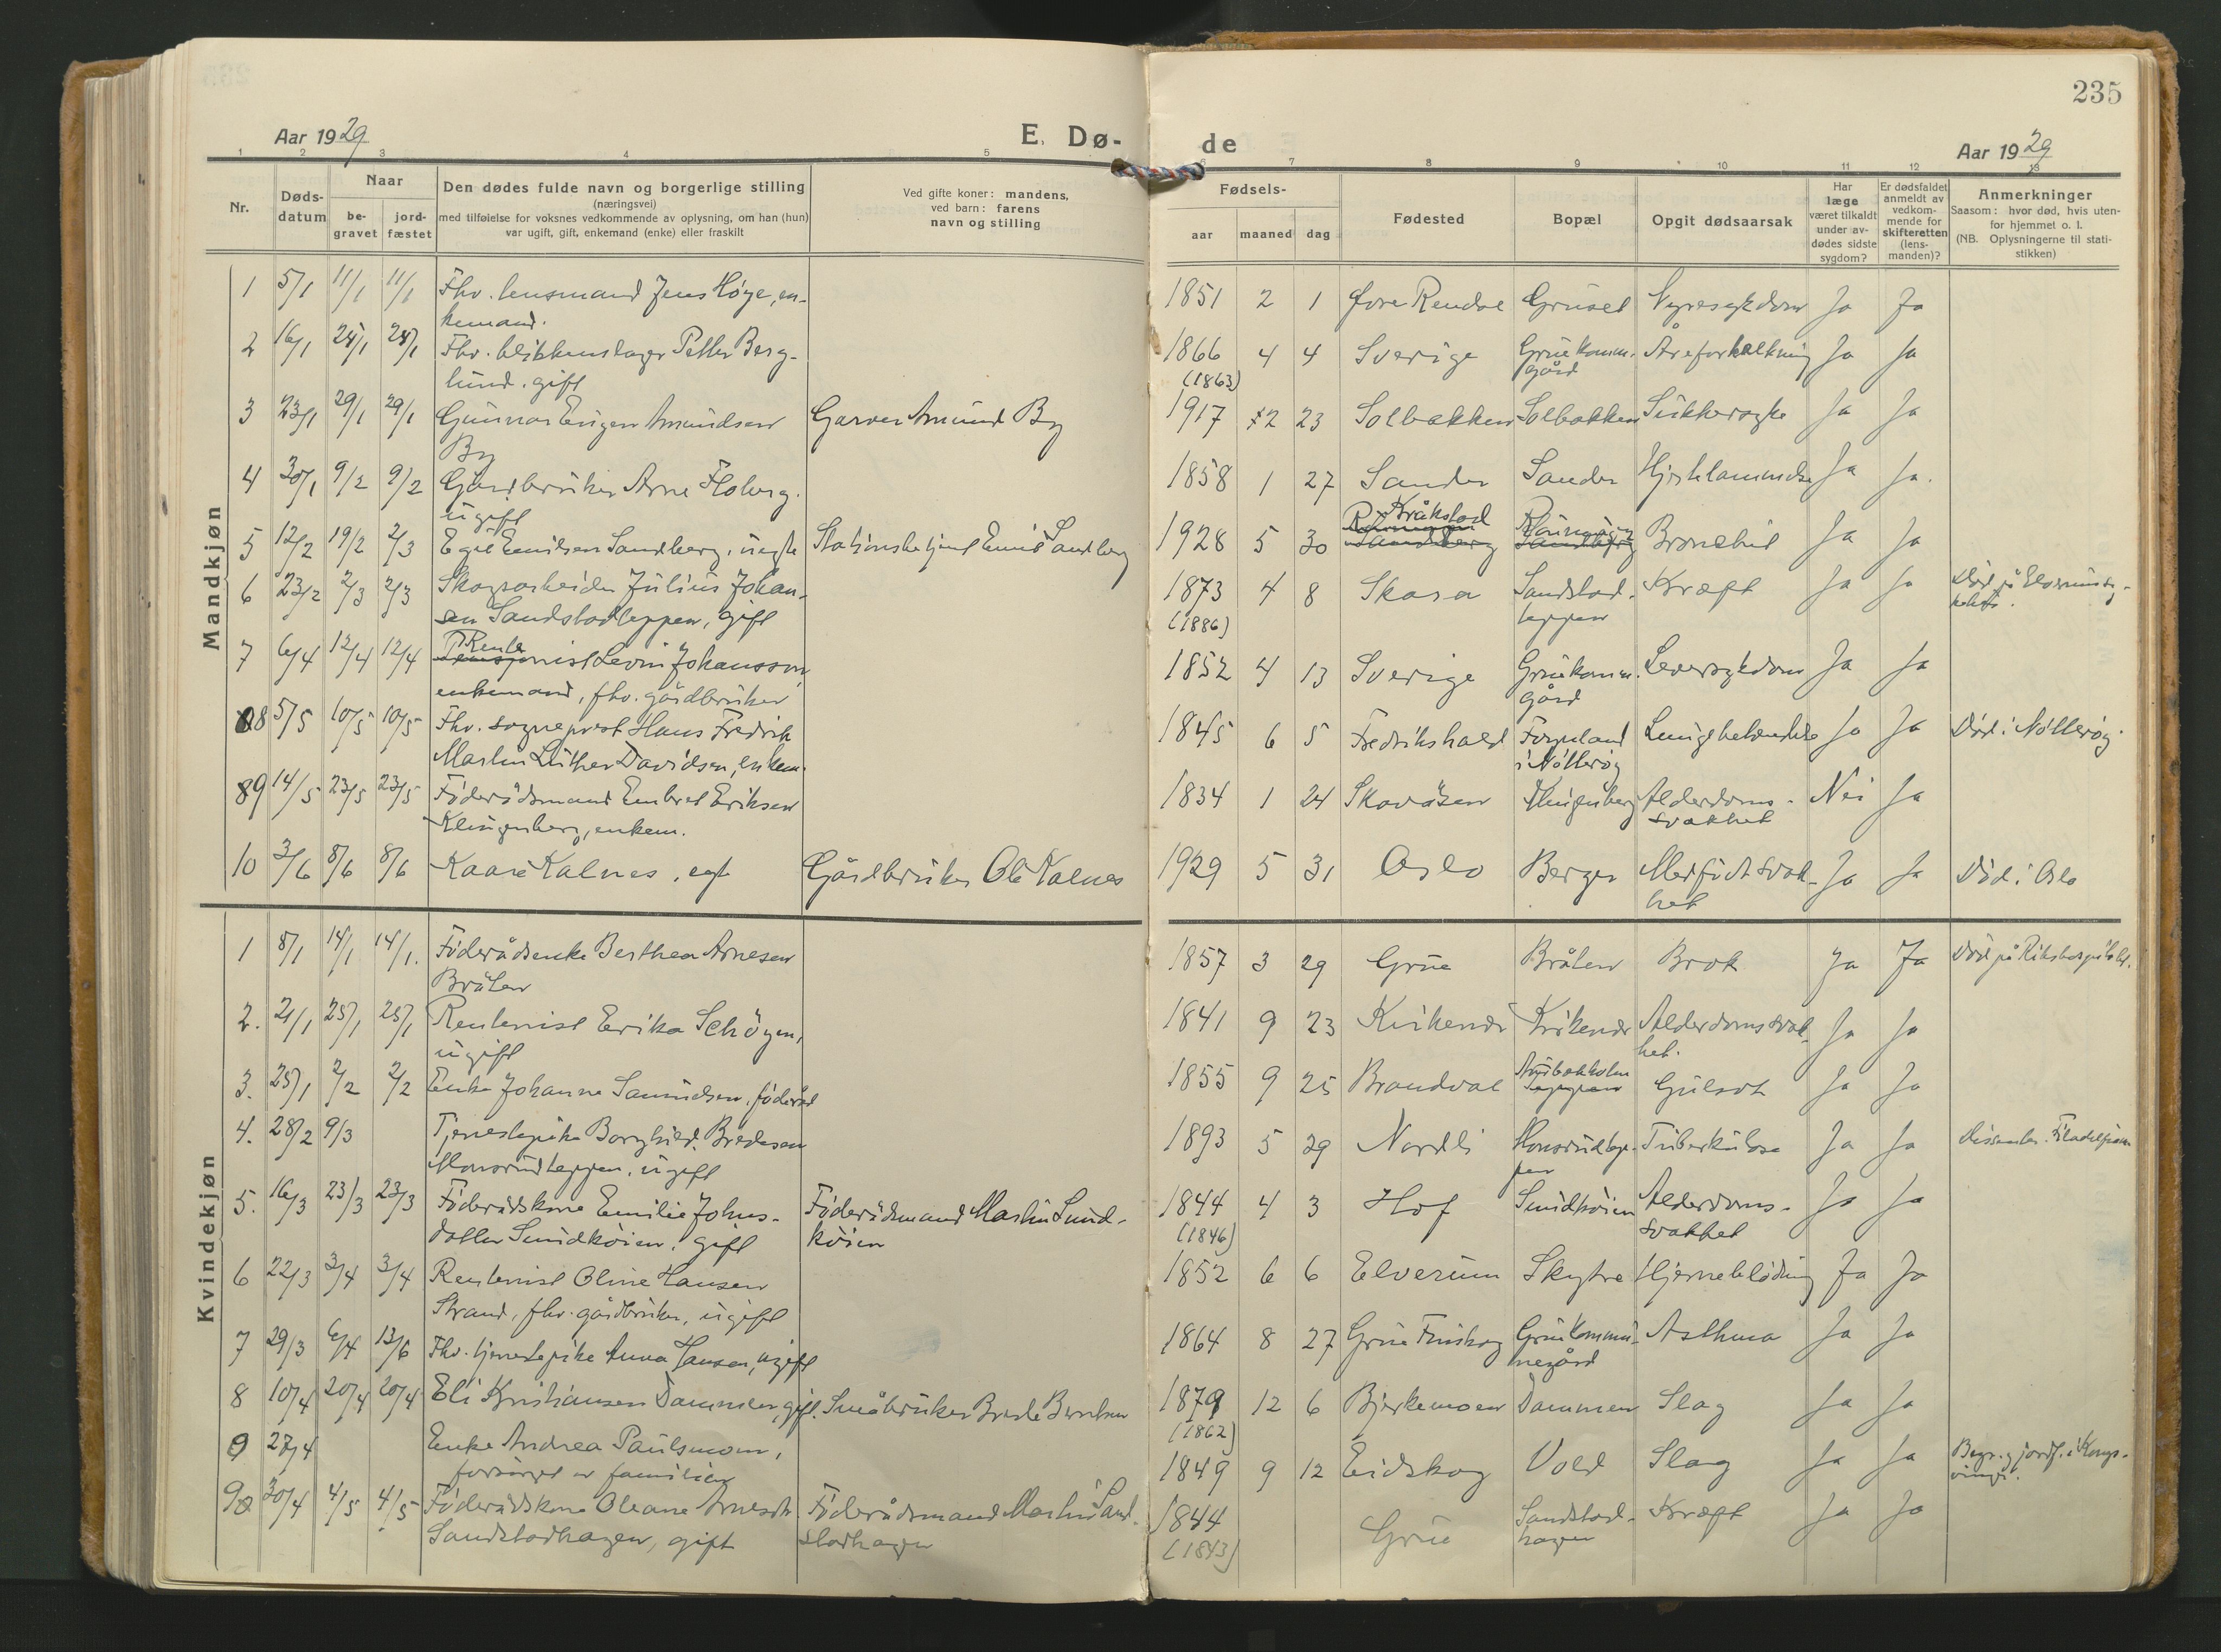 235
Aar 1929
E. Dø-
de
Aar 1929
1 2 3 4 5 6 7 8 9 10 11 12 13
Nr.
Døds-
datum
Naar
be-
gravet
jord-
fæstet
Den dødes fulde navn og borgerlige stilling
(næringsvei)
med tilføielse for voksnes vedkommende av oplysning, om han (hun)
var ugift, gift, enkemand (enke) eller fraskilt
Ved gifte koner: mandens,
ved barn: farens
navn og stilling
Fødsels-
aar maaned dag
Fødested
Bopæl
Opgit dødsaarsak
Har
læge
været tilkaldt
under av-
dødes sidste
sygdom?
Er dødsfaldet
anmeldt av
vedkom-
mende for
skifteretten
(lens-
manden)?
Anmerkninger
Saasom: hvor død, hvis uten-
for hjemmet o. l.
(NB. Oplysningerne til stati-
stikken)
Mandkjøn
1 5/1 11/1 11/1 Fhv. lensmand Jens Høye, en- 1851 2 1 Øvre Rendal Gruset Nyresykdom Ja Ja
kemand.
2 16/1 24/1 24/1 Fhv. blikkenslager Petter Berg- 1866 4 4 Sverige Grue komm. Åreforkalkning Ja Ja
lund. gift (1863) gård
3 23/1 29/1 29/1 Gunnar Eugen Amundsen Garver Amund By 1917 2 23 Solbakken Solbakken Sukkersyke Ja Ja
By
4 30/1 9/2 9/2 Gårdbruker Arne Floberg. 1858 1 27 Sander Sander Hjertelammelse Ja Ja.
ugift
Kråkstad
5 12/2 19/2 2/3 Egil Emilsen Sandberg, uegte Stationsbetjent Emil Sandberg 1928 5 30 Sandberg Sandberg Bronchit Ja Ja
6 23/2 2/3 2/3 Skogsarbeider Julius Johan- 1873 4 8 Skasa Sandstad- Kræft Ja Ja Død på
sen Sandstadteppen, gift (1886) teppen
Rente
7 6/4 12/4 12/4 Pensjonist Levin Johansson, 1852 4 13 Sverige Grue komm. Leversykdom Ja Ja
enkemand, fhv. gårdbruker gård
8 5/5 10/5 10/5 Fhv. sogneprest Hans Fredrik 1845 6 5 Fredrikshald Føynland Lungebetændelse Ja Ja Død i Nøtterøy.
Martin Luther Davidsen, enkem. i Nøtterøy
89 14/5 23/5 23/5 Føderådsmand Embret Eriksen 1834 1 24 Skavåsen Klingenberg Alderdoms- Nei Ja
Klingenberg, enkem. svakhet
10 3/6 8/6 8/6 Kaare Kalnes, egte Gårdbruker Ole Kalnes 1929 5 31 Oslo Berger Medfødt svak- Ja Ja Død i Oslo
het
Kvindekjøn
1 8/1 14/1 14/1. Føderådsenke Berthea Arnesen 1857 3 29 Grue Bråten Brok Ja Ja Død på Rikshospitalet.
Bråten
2. 21/1 25/1 25/1 Rentenist Erika Schøyen, 1841 9 23 Kvikende Kvikende Alderdomssvak- Ja Ja
ugift het.
3. 25/1 2/2 2/2 Enke Johanne Samuelsen, føderåd 1855 9 25 Brandval teppen Gulsot Ja Ja
4. 28/2 9/3 Tjenestepike Borghild Bredesen 1893 5 29 Nordli Monsrudtep- Tuberkulose Ja Ja dissenter. Filadelfia
Monsrudteppen, ugift pen
5. 16/3 23/3 23/3 Føderådskone Emilie Johns- Føderådsmand Martin Sund- 1844 4 3 Hof Sundkøien Alderdoms- Ja Ja
datter Sundkøien. gift køien (1846) svakhet
6 22/3 3/4 3/4 Rentenist Oline Hansen 1852 6 6 Elverum Skytre Hjerneblødning Ja Ja
Strand, fhv. gårdbruker, ugift
7 29/3 6/4 13/6 Fhv. tjenestepike Anna Hansen, ugift 1864 8 27 Grue Finskog Grue kommu- Asthma Ja Ja
negård
8 10/4 20/4 20/4 Eli Kristiansen Dammen, gift. Småbruker Brede Berntsen 1879 12 6 Bjerkemoen Dammen Slag Ja Ja
(1862)
9 27/4 Enke Andrea Paulsmoen, 1849 9 12 Eidskog Vold Slag Ja Ja Begr. og jordf. i Kongs-
forsørget av familien vinger.
9 30/4 4/5 4/5 Føderådskone Oleane Arnesdtr. Føderådsmand Martin Sand- 1844 Grue Sandstad- Kræft Ja Ja
Sandstadhagen, gift stadhagen (1843) hagen